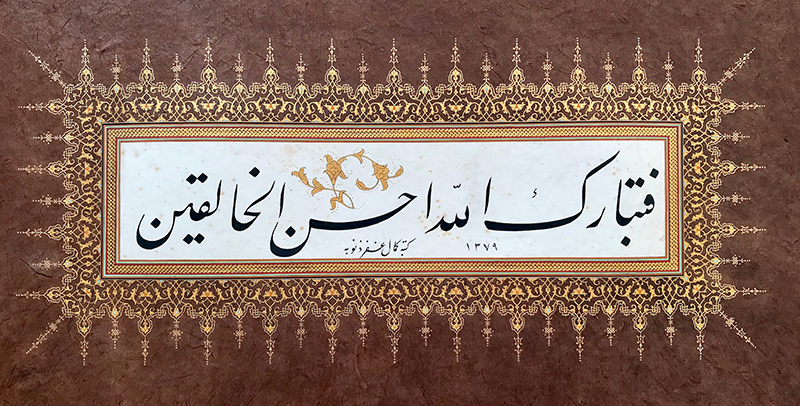 فتبارك الله احسن الخالقين
كتبه كمال غفر ذنوبه ١٣٧٩